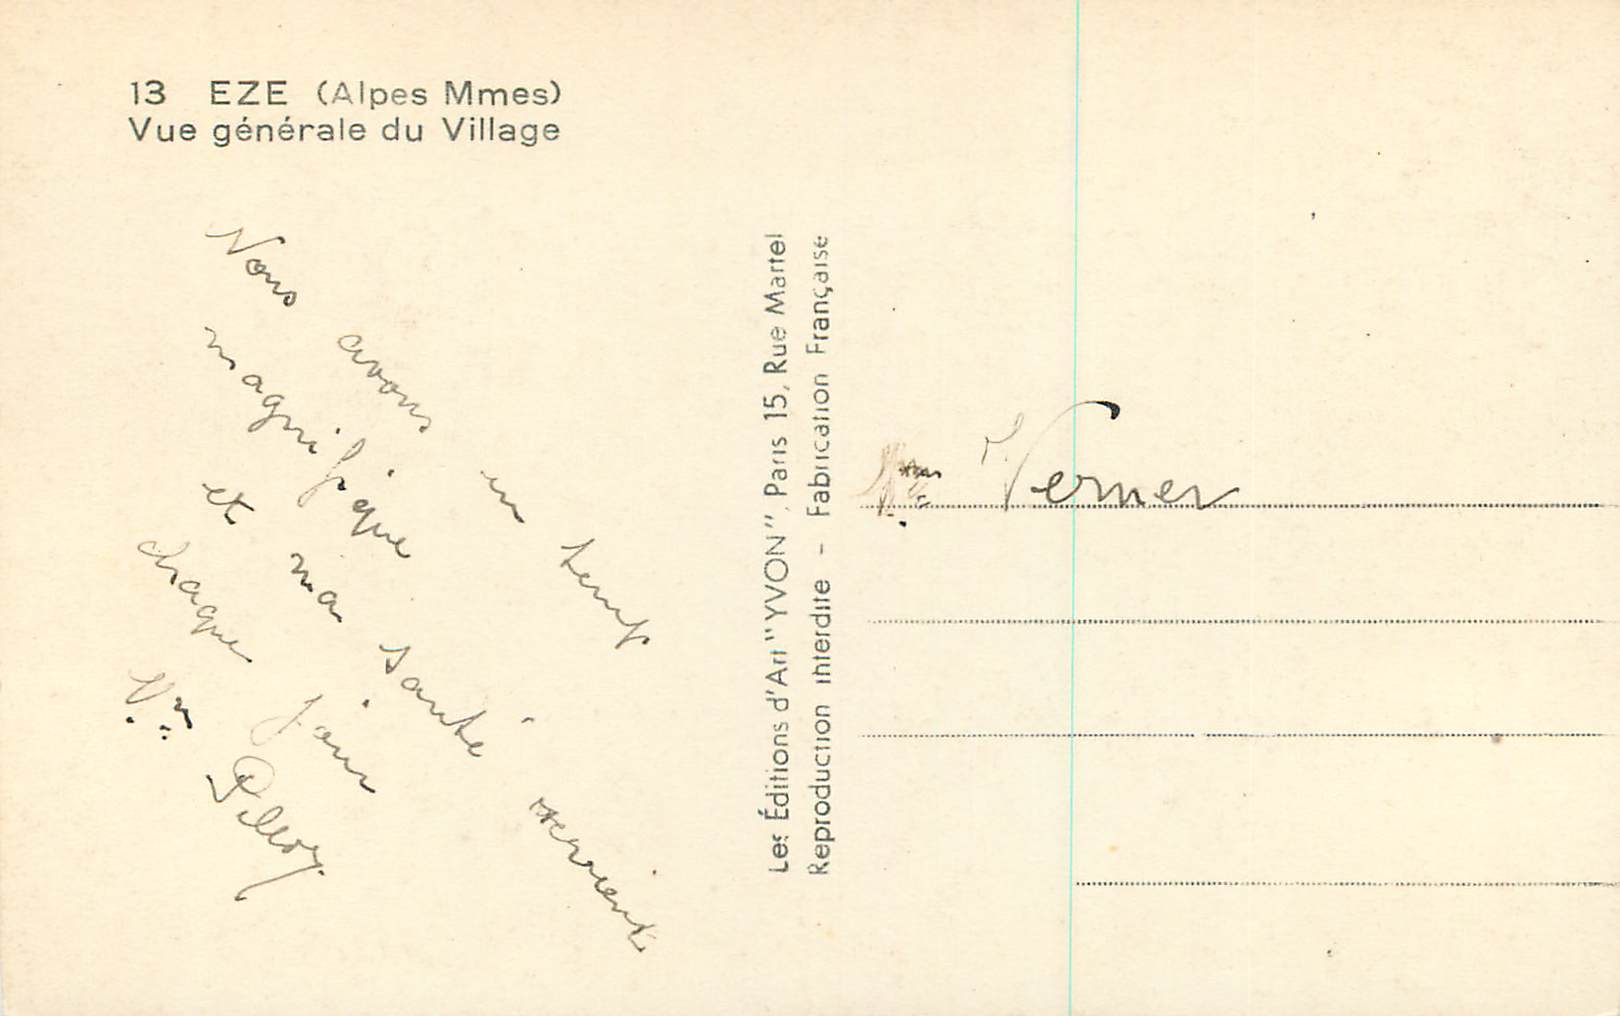 13 EZE (Alpes Mmes)
Vue générale du Village
Nous avons un temps
magnifique
et ma santé revient
chaque jour
Les Éditions d'Art "YVON", Paris 15, Rue Martel
Reproduction interdite - Fabrication Française